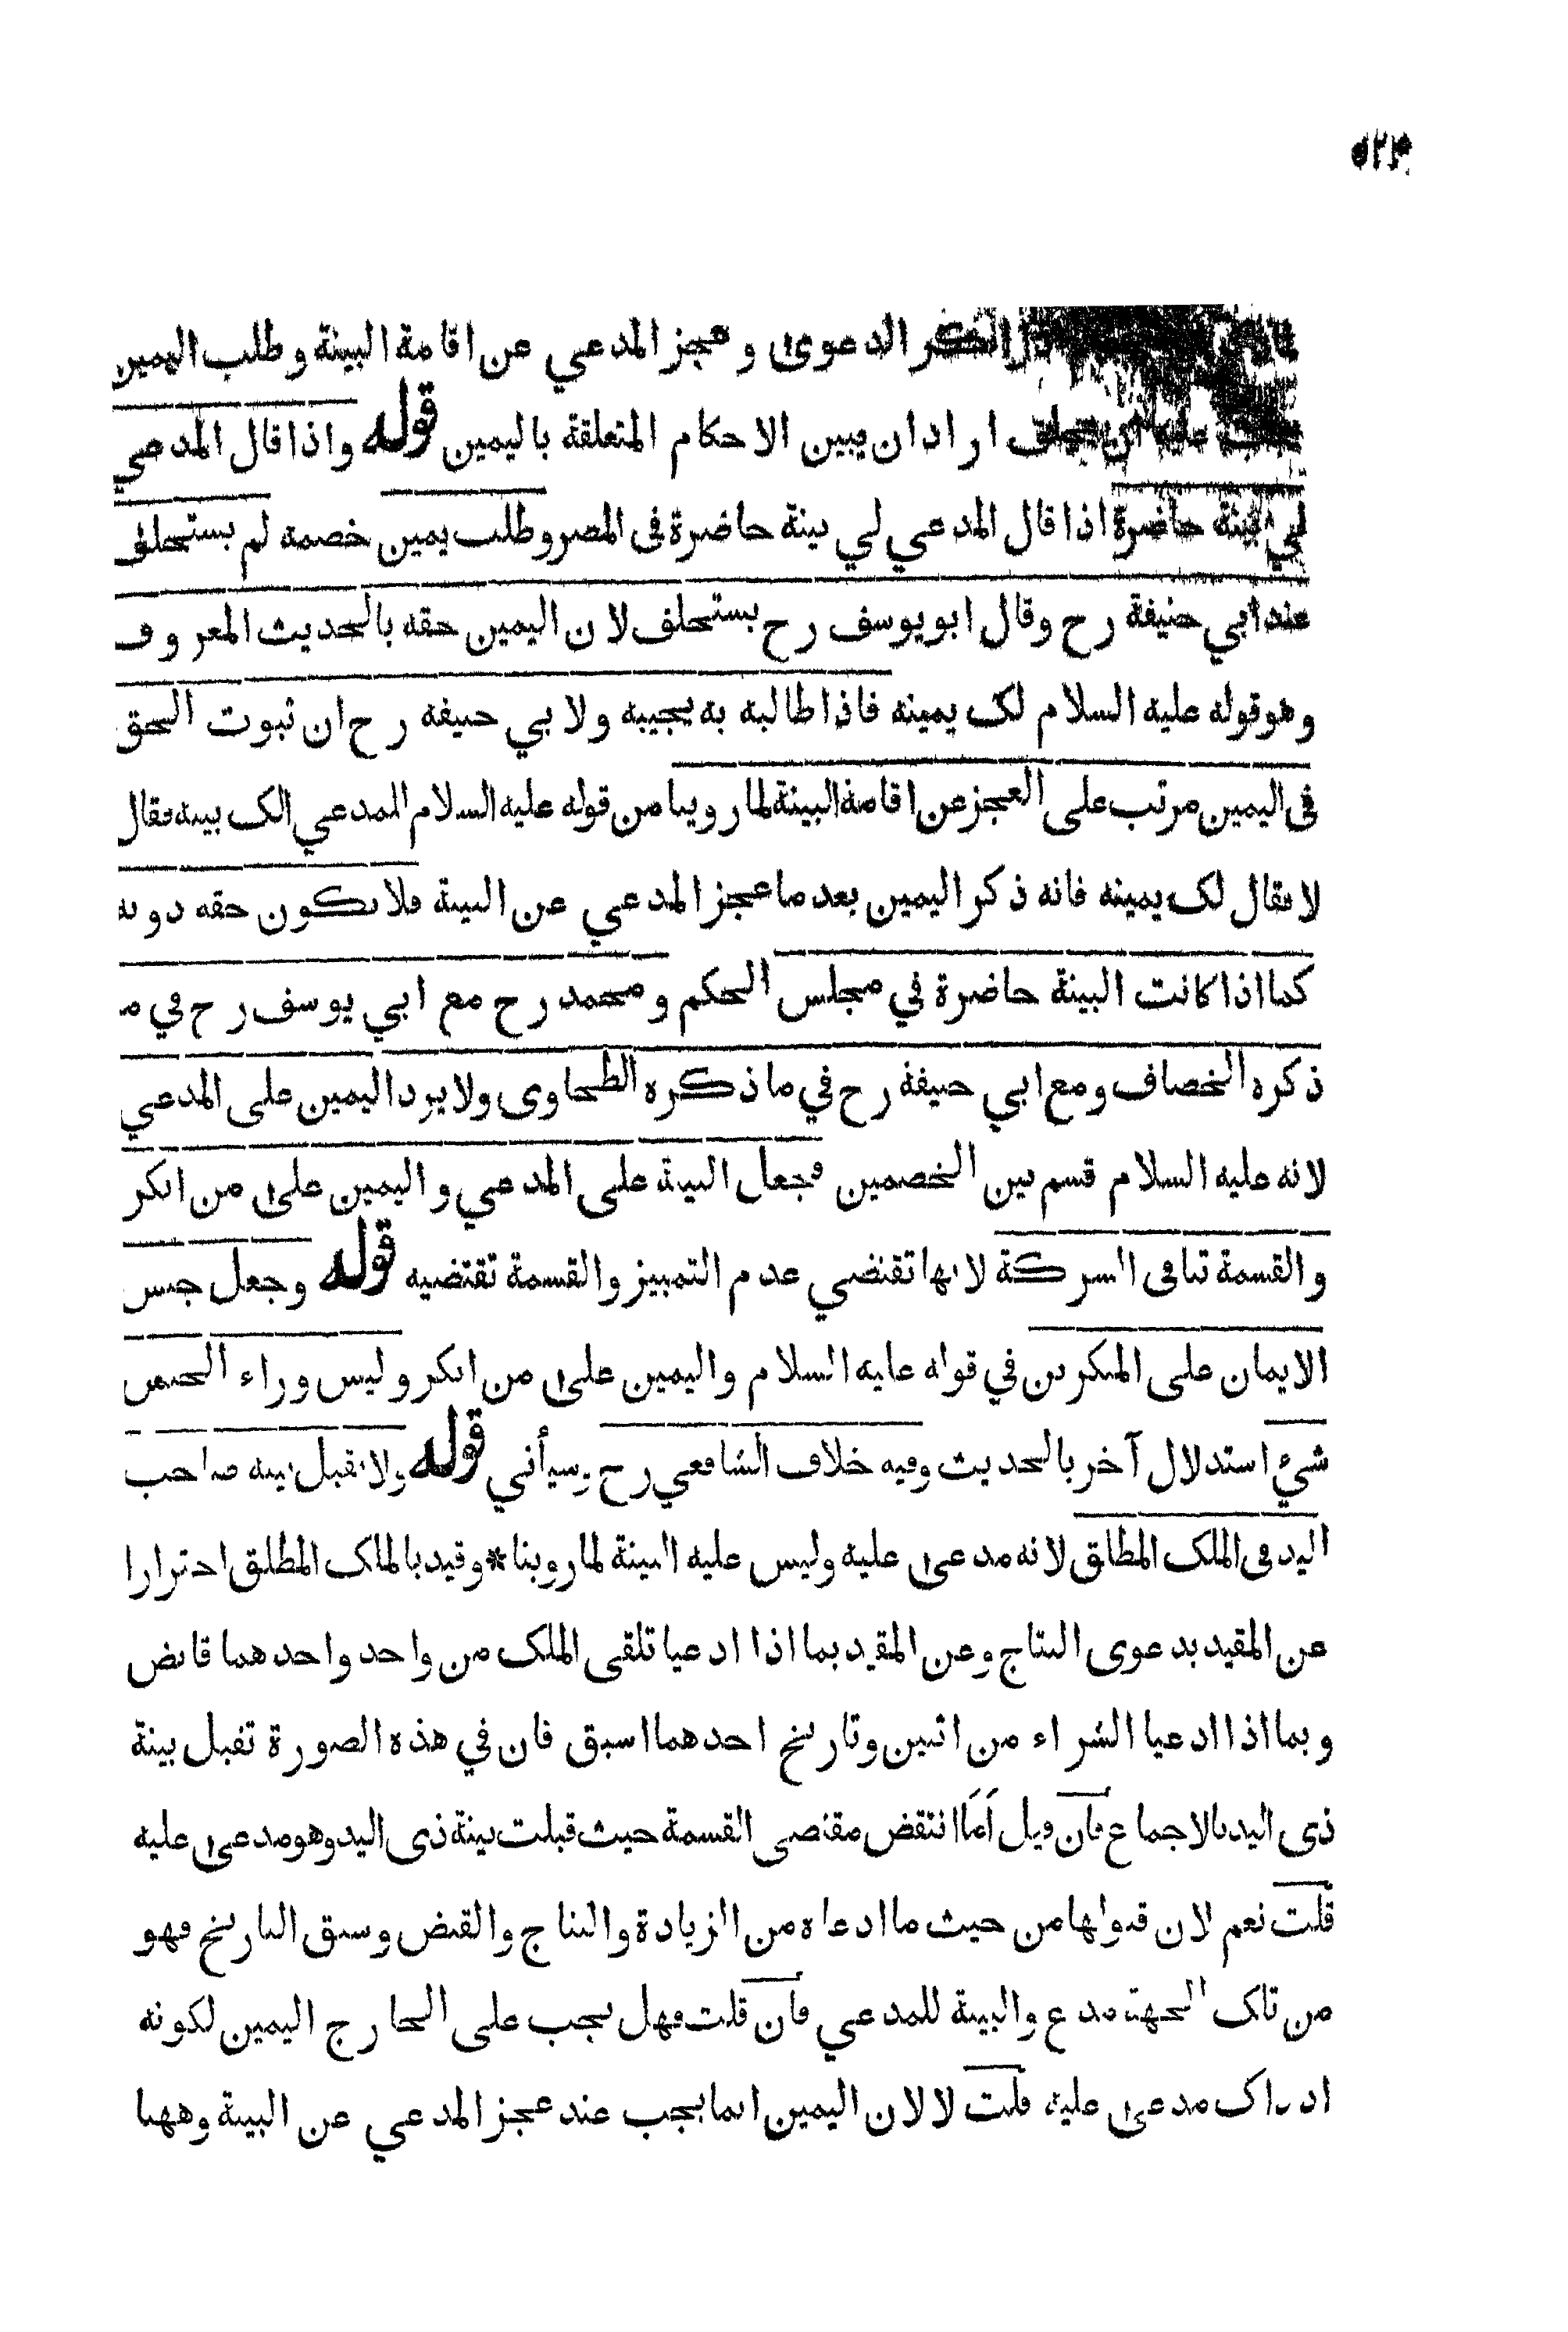 انكر الدعوى وعجز المدعي عن اقامة البينة وطلب اليمين
يجب عليه ان يحلف اراد ان يبين الاحكام المتعلقة باليمين قوله واذا قال المدعي
لي بينة حاضرة اذا قال المدعي لي بينة حاضرة فى المصر وطلب يمين خصمه لم يستحلف
عند ابي حنيفة رح وقال ابو يوسف رح يستحلف لان اليمين حقه بالحديث المعروف
وهو قوله عليه السلام لك يمينه فاذا طالبه به يجيبه ولابي حنيفه رح ان ثبوت الحق
فى اليمين مرتب على العجز عن اقامة البينة لما روينا من قوله عليه السلام للمدعي الك بينه فقال
لا فقال لك يمينه فانه ذكر اليمين بعد ما عجز المدعي عن البينة فلا يكون حقه دونه
كما اذا كانت البينة حاضرة في مجلس الحكم ومحمد رح مع ابي يوسف رح في ما
ذكره الخصاف ومع ابي حنيفة رح في ما ذكره الطحاوى ولا يرد اليمين على المدعي
لانه عليه السلام قسم بين الخصمين فجعل البينة على المدعي واليمين على من انكر
والقسمة تنافى الشركة لانها تقتضي عدم التمييز والقسمة تقتضيه قوله وجعل جنس
الايمان على المنكرين في قوله عليه السلام واليمين على من انكر وليس وراء الجنس
شيء استدلال آخر بالحديث وفيه خلاف الشافعي رح وسيأتي قوله ولا تقبل بينه صاحب
اليد فى الملك المطلق لانه مدعى عليه وليس عليه البينة لما روينا * وقيد بالملك المطلق احترازا
عن المقيد بدعوى النتاج وعن المقيد بما اذا ادعيا تلقى الملك من واحد واحدهما قابض
وبما اذا ادعيا الشراء من اثنين وتاريخ احدهما اسبق فان في هذه الصورة تقبل بينة
ذى اليد بالاجماع فان قيل أمَا انتقض مقتضى القسمة حيث قبلت بينة ذى اليد وهو مدعى عليه
قلت نعم لان قبولها من حيث ما ادعاه من الزيادة والنتاج والقبض وسبق التاريخ فهو
من تلك الجهة مدع والبينة للمدعي فان قلت فهل يجب على الخارج اليمين لكونه
اذ ذاك مدعى عليه قلت لا لان اليمين انما يجب عند عجز المدعي عن البينة وههنا